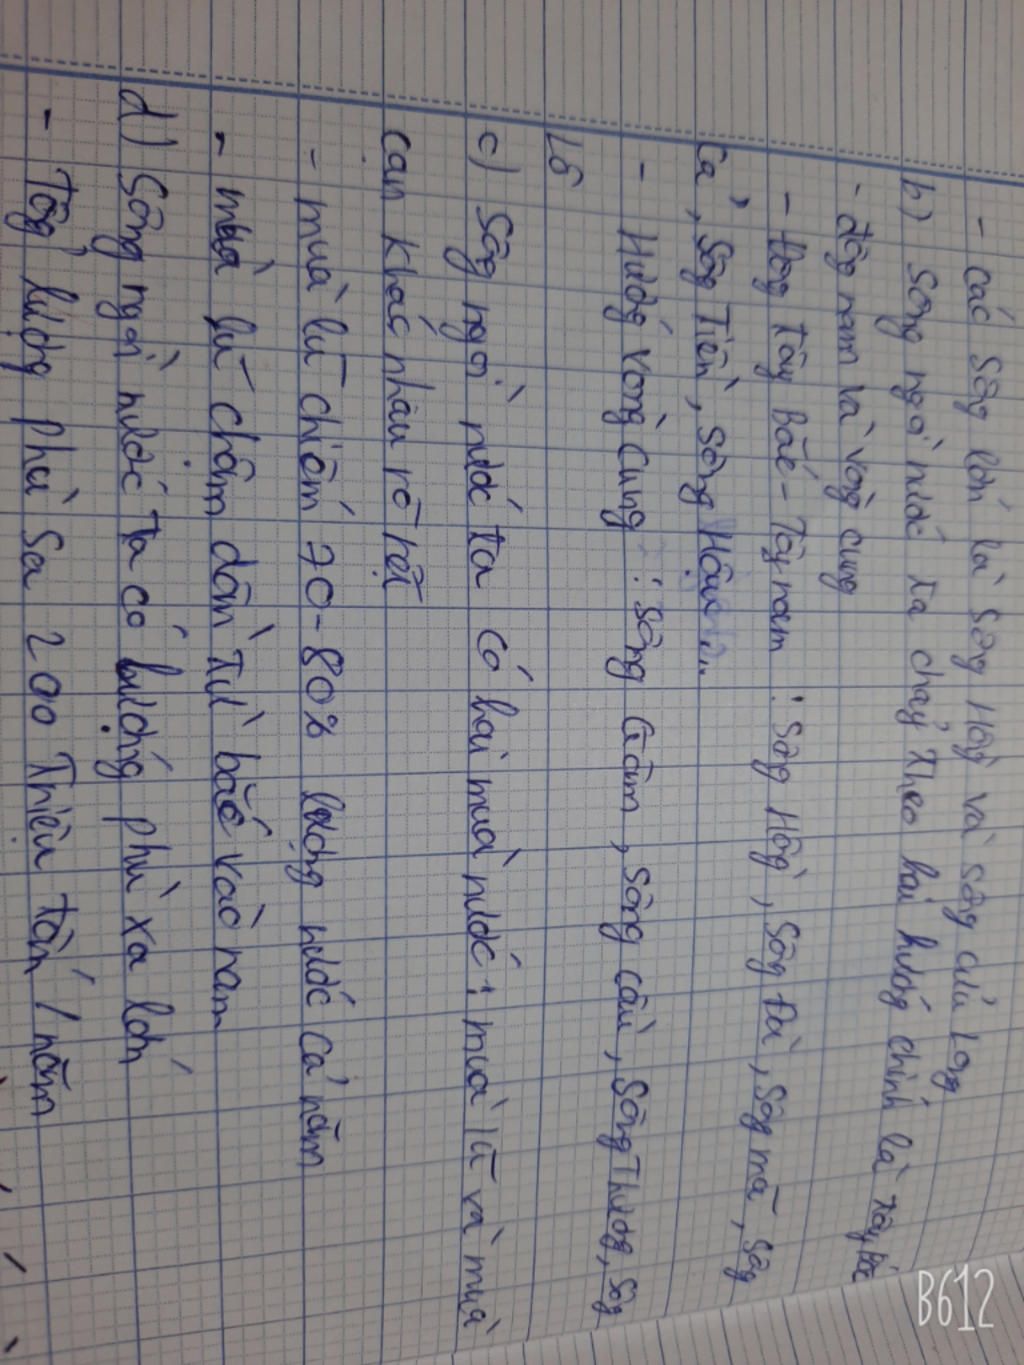 - các sông lớn là sông Hồng và sông cửu Long
b) Sông ngòi nước ta chảy theo hai hướng chính là tây bắc
- đông nam và vòng cung
- hướng Tây Bắc - Tây nam : sông Hồng, sông Đà, sông mã, sông
Cả, Sông Tiền, sông Hậu...
- Hướng vòng cung : sông Gâm, sông cầu, sông Thương, sông
Lô
c) Sông ngòi nước ta có hai mùa nước: mùa lũ và mùa
cạn khác nhau rõ rệt
- mùa lũ chiếm 70-80% lượng nước cả năm
- mùa lũ chậm dần từ bắc vào nam
d) Sông ngòi nước ta có lượng phù xa lớn
- Tổng lượng phù sa 200 triệu tấn / năm
B612